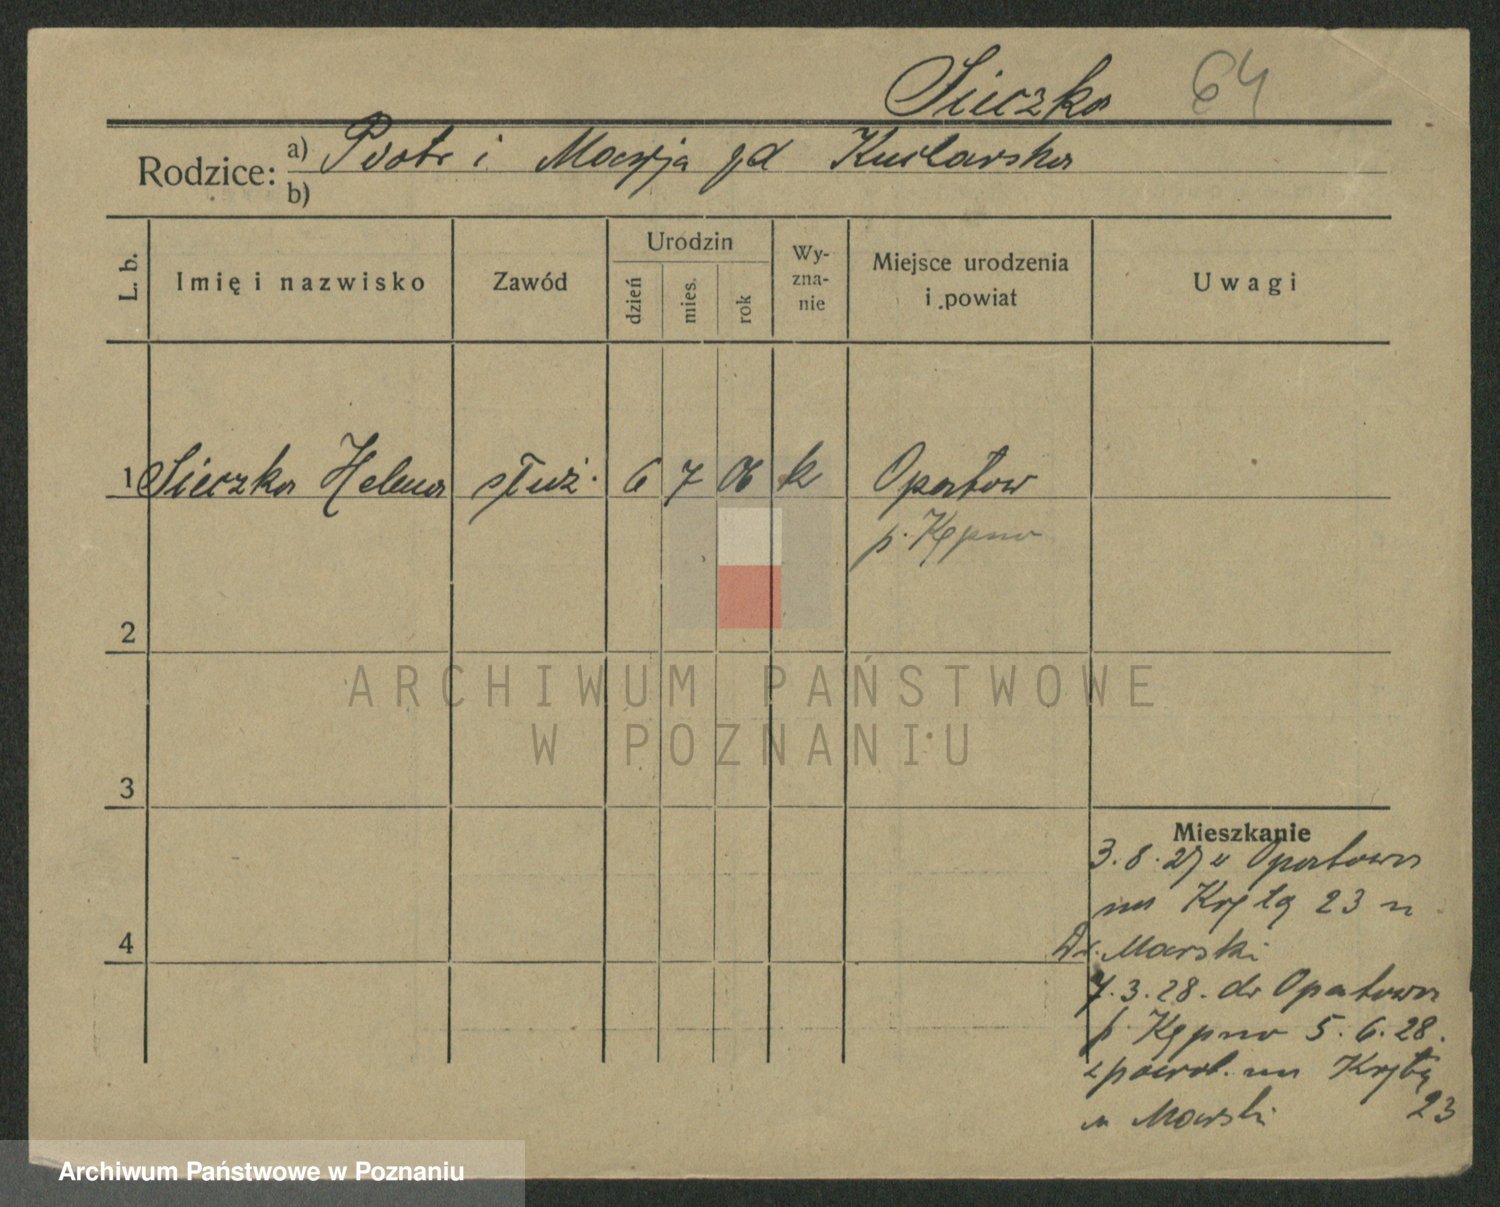 Sieczka 64
Rodzice: a) Piotr i Maryja zd Kuślarska
b)
L. b.
Imię i nazwisko
Zawód
Urodzin
dzień
mies.
rok
Wy-
zna-
nie
Miejsce urodzenia
i powiat
Uwagi
1 Sieczka Helena służ. 6 7 06 k Opatow
p. Kępno
2
3
4
Mieszkanie
3.8.27 z Opatowa
na Krętą 23 u
Marski
7.3.28. do Opatowa
p. Kępno 5.6.28.
z powrot. na Krętą
23
u Marski
ARCHIWUM PAŃSTWOWE
W POZNANIU
Archiwum Państwowe w Poznaniu